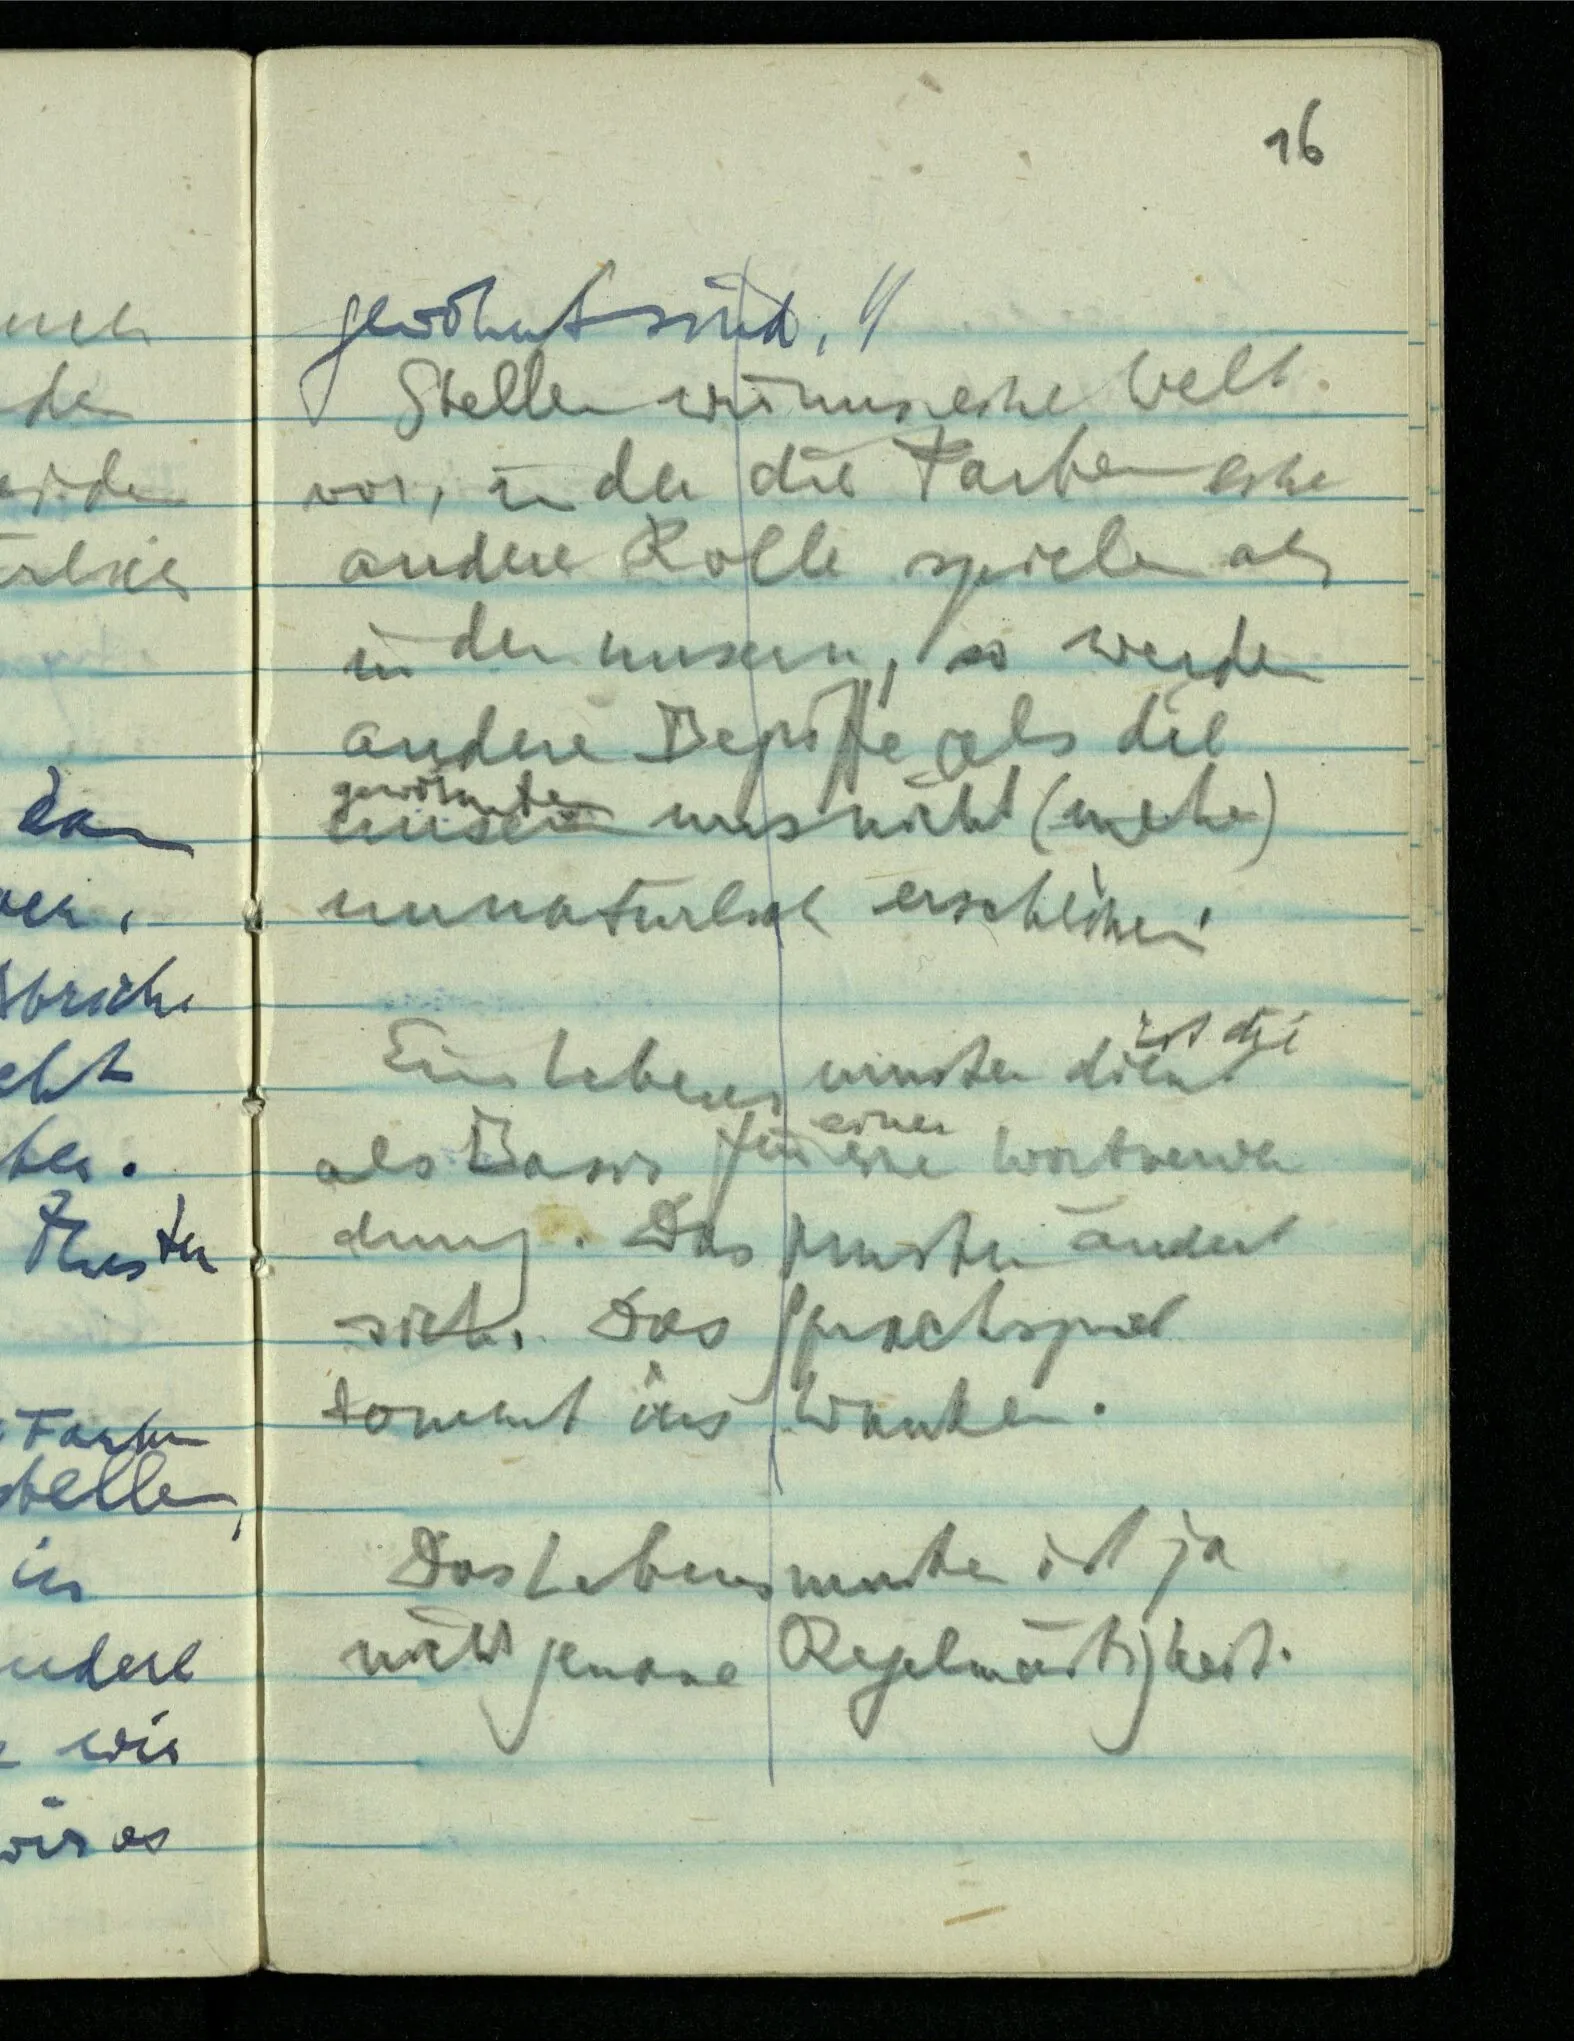 16
gewöhnt sind. //
Stellen wir uns eine Welt
vor, in der die Farben eine
andere Rolle spielen als
in der unsern, so werden
andere Begriffe als die
gewohnten
unsern uns nicht (mehr)
unnatürlich erscheinen.
ist die
Ein Lebensmuster dient
einer
als Basis für eine Wortverwen
dung. Das Muster ändert
sich. Das Sprachspiel
kommt ins Wanken.
Das Lebensmuster ist ja
nicht genaue Regelmässigkeit.
den
Muster
Farben
stellen,
in
wir